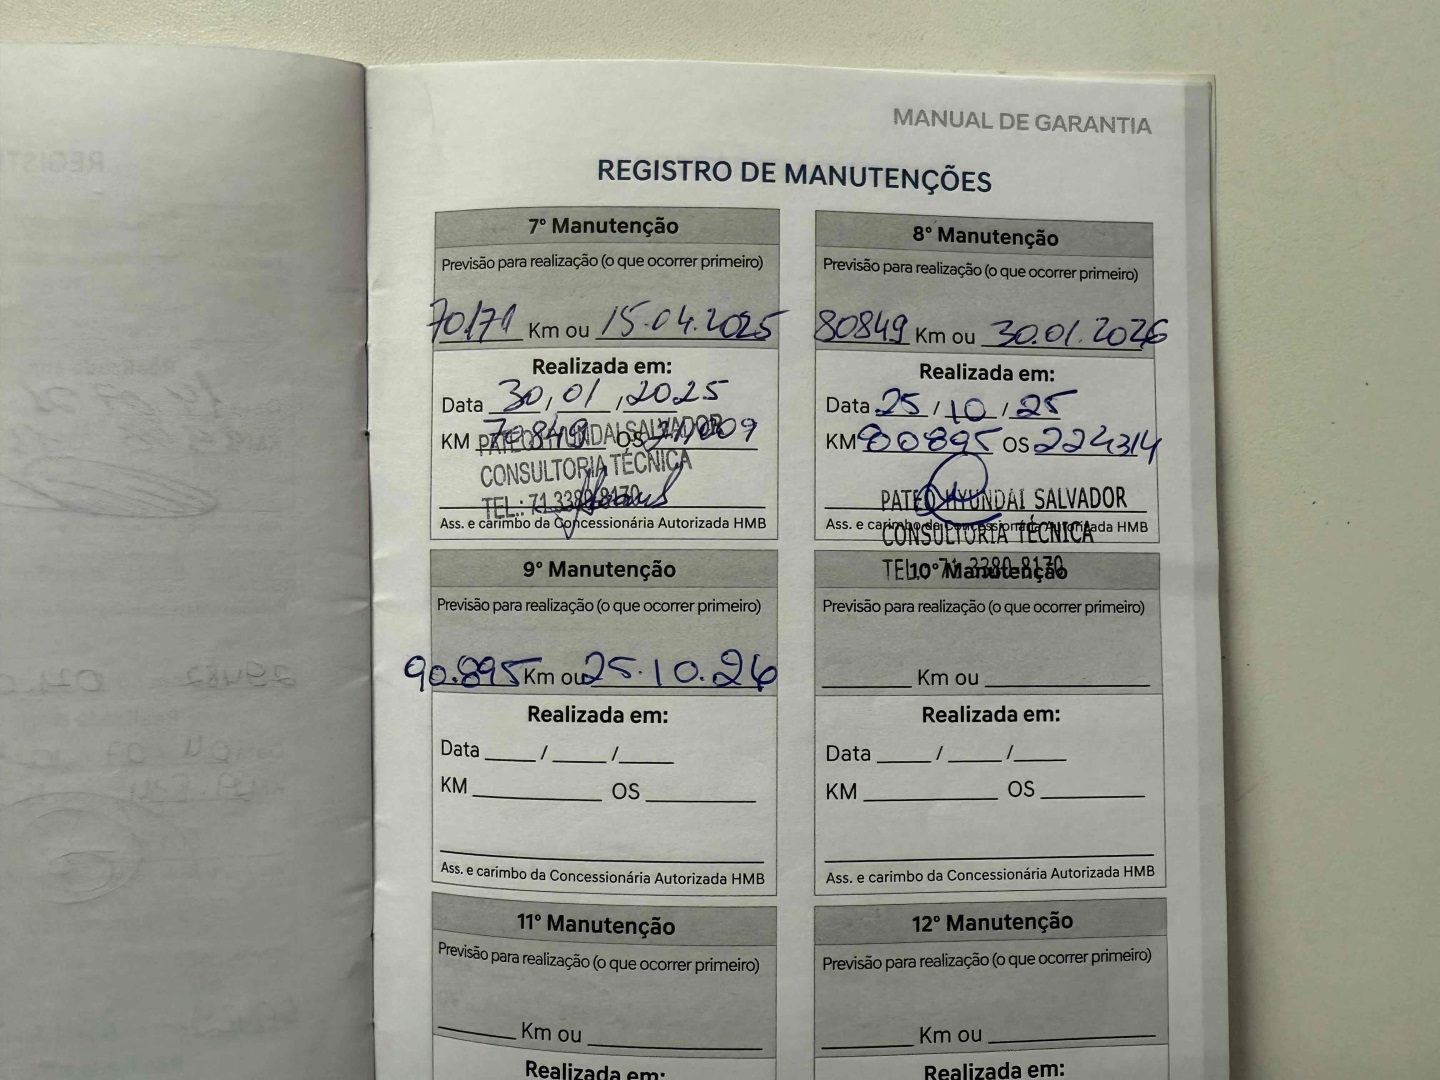 MANUAL DE GARANTIA
REGISTRO DE MANUTENÇÕES
7º Manutenção
Previsão para realização (o que ocorrer primeiro)
70171 Km ou 15.04.2025
Realizada em:
Data 30/01/2025
KM 70849 OS
PATEO HYUNDAI SALVADOR
CONSULTORIA TÉCNICA
TEL.: 71 3380 8170
Ass. e carimbo da Concessionária Autorizada HMB
8º Manutenção
Previsão para realização (o que ocorrer primeiro)
80849 Km ou 30.01.2026
Realizada em:
Data 25/10/25
KM 80895 OS 224314
PATEO HYUNDAI SALVADOR
Ass. e carimbo da Concessionária Autorizada HMB
CONSULTORIA TÉCNICA
TEL.: 71 3380 8170
9º Manutenção
Previsão para realização (o que ocorrer primeiro)
90.895 Km ou 25.10.26
Realizada em:
Data ____/____/____
KM ________ OS ________
Ass. e carimbo da Concessionária Autorizada HMB
10º Manutenção
Previsão para realização (o que ocorrer primeiro)
________ Km ou ________
Realizada em:
Data ____/____/____
KM ________ OS ________
Ass. e carimbo da Concessionária Autorizada HMB
11º Manutenção
Previsão para realização (o que ocorrer primeiro)
________ Km ou ________
Realizada em:
12º Manutenção
Previsão para realização (o que ocorrer primeiro)
________ Km ou ________
Realizada em: